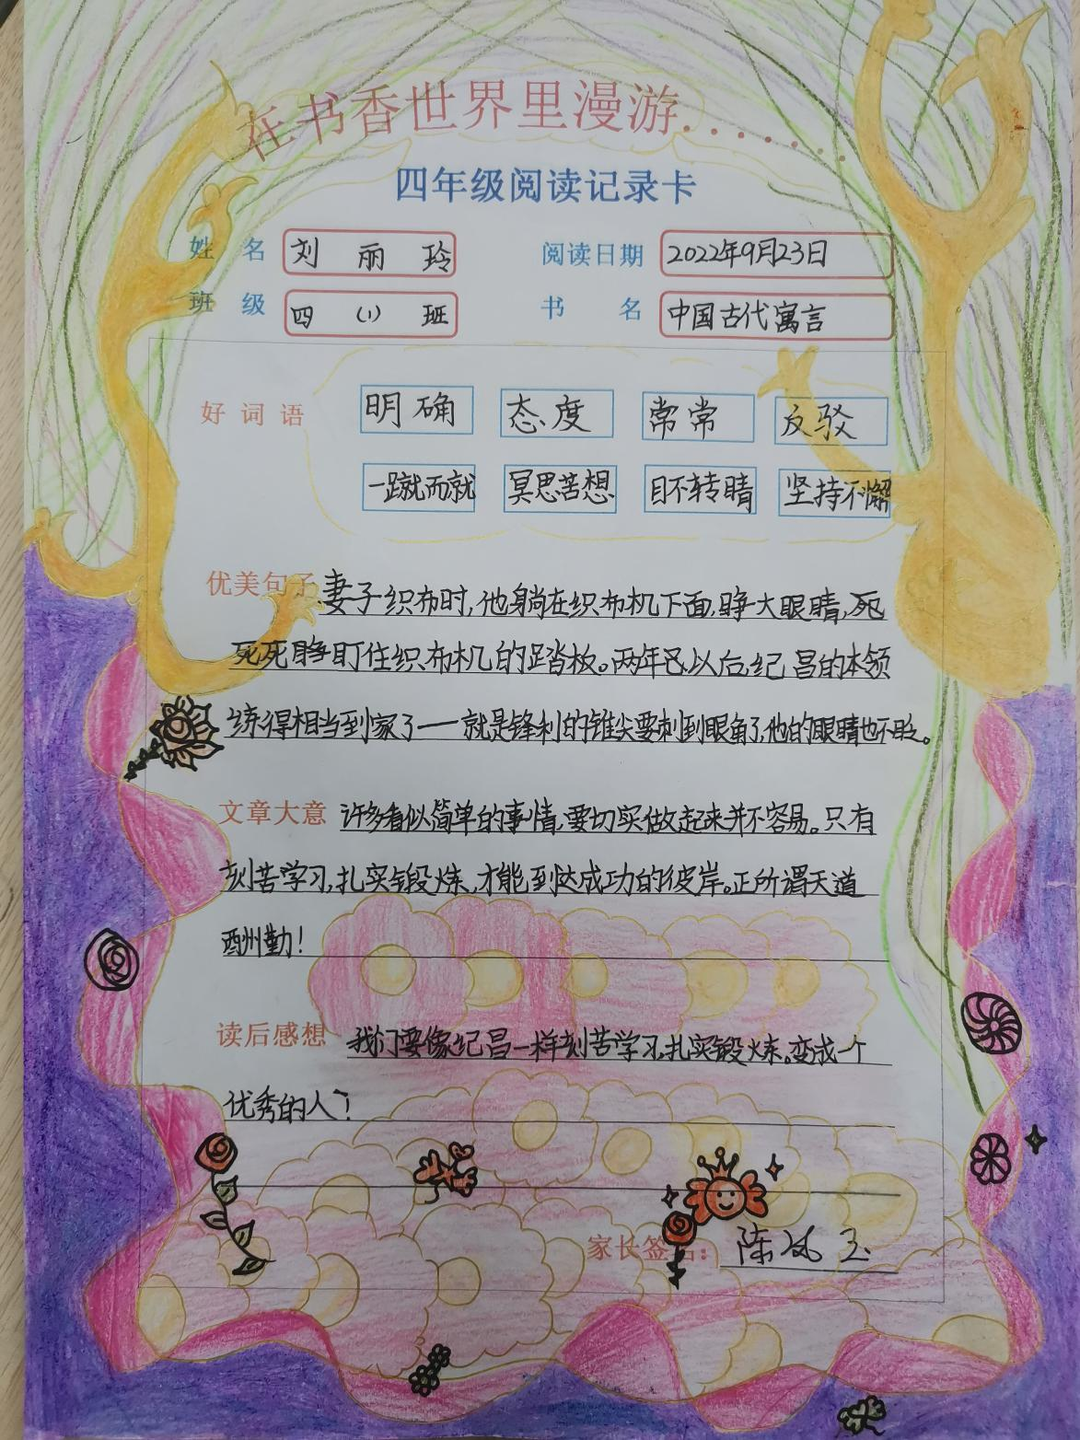 在书香世界里漫游......
四年级阅读记录卡
姓 名 刘 丽 玲 阅读日期 2022年9月23日
班 级 四 (1) 班 书 名 中国古代寓言
好 词 语 明确 态度 常常 反驳
一蹴而就 冥思苦想 目不转睛 坚持不懈
优美句子 妻子织布时,他躺在织布机下面,睁大眼睛,死
死死睁盯住织布机的踏板。两年已以后,纪昌的本领
练得相当到家了——就是锋利的锥尖要刺到眼角了,他的眼睛也不眨。
文章大意 许多看似简单的事情,要切实做起来并不容易。只有
刻苦学习,扎实锻炼,才能到达成功的彼岸。正所谓天道
酬勤!
读后感想 我们要像纪昌一样刻苦学习,扎实锻炼。变成一个
优秀的人!
家长签名: 陈凤玉